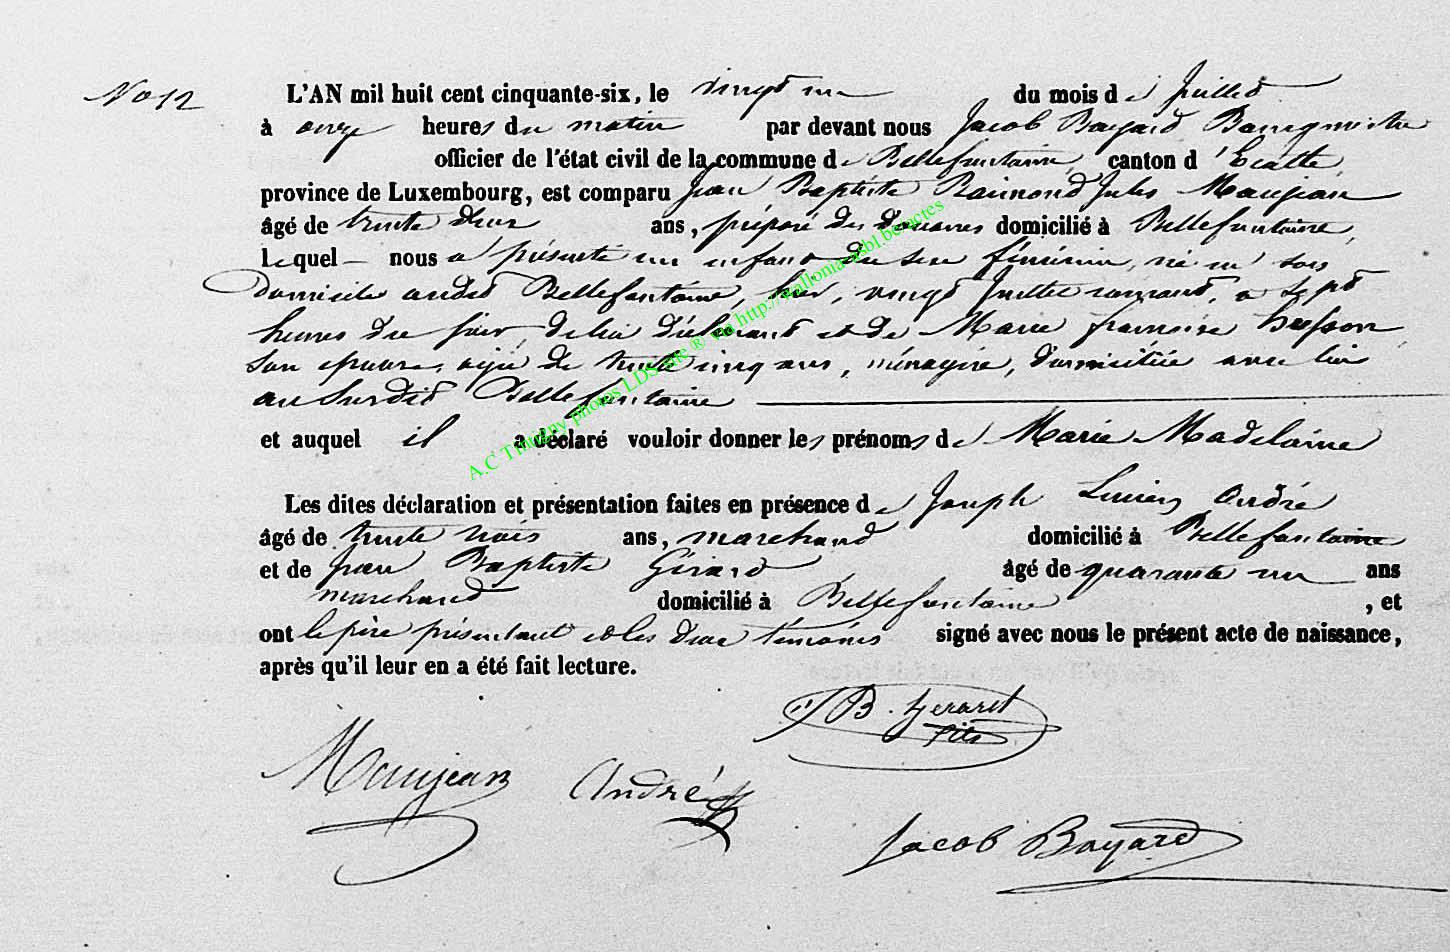 No 12
L'AN mil huit cent cinquante-six, le vingt un du mois de Juillet
à onze heures du matin par devant nous Jacob Bayard Bourgmestre
officier de l'état civil de la commune de Bellefontaine, canton d'Etalle,
province de Luxembourg, est comparu Jean Baptiste Raimond Jules Maujean
âgé de trente deux ans, préposé des douanes domicilié à Bellefontaine,
lequel nous a présenté un enfant du sexe féminin, né en son
domicile audit Bellefontaine, hier, vingt Juillet courant, a sept
heures du soir, de lui déclarant et de Marie françoise husson
son epouse, agée de trente cinq ans, ménagère, domiciliée avec lui
au Susdit Bellefontaine
et auquel il a déclaré vouloir donner les prénoms de Marie Madelaine
Les dites déclaration et présentation faites en présence de Joseph Lucien André
âgé de trente trois ans, marchand domicilié à Bellefontaine
et de Jean Baptiste Gérard âgé de quarante un ans
marchand domicilié à Bellefontaine, et
ont le père présentant et les deux témoins signé avec nous le présent acte de naissance,
après qu'il leur en a été fait lecture.
JB. Gerard
fils
Maujean André
Jacob Bayard
A.C Tintigny photos LDS site ® via http://wallonia-asbl.be/actes